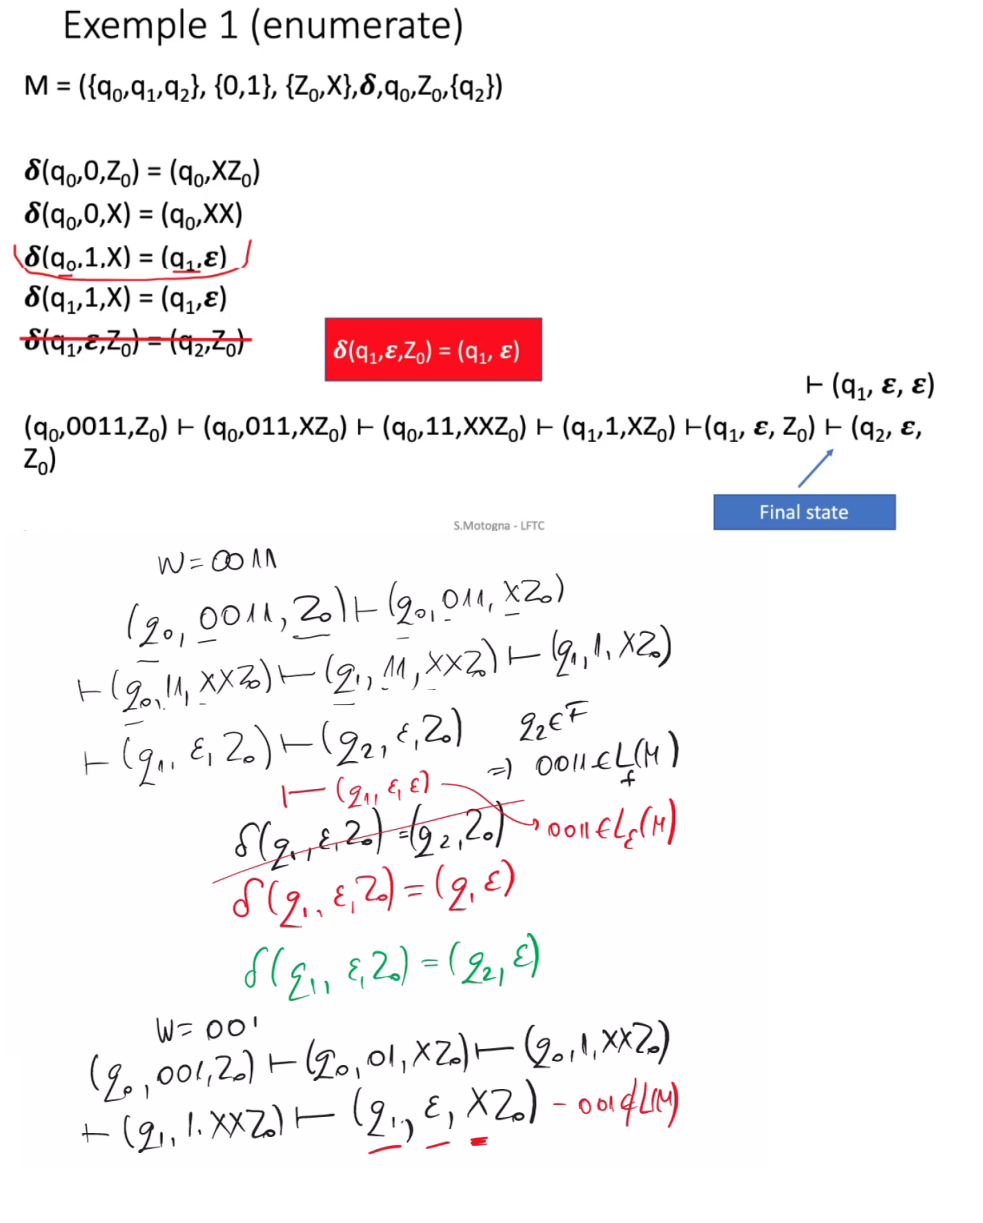 Exemple 1 (enumerate)
M = ({q₀,q₁,q₂}, {0,1}, {Z₀,X},𝜹,q₀,Z₀,{q₂})
𝜹(q₀,0,Z₀) = (q₀,XZ₀)
𝜹(q₀,0,X) = (q₀,XX)
𝜹(q₀,1,X) = (q₁,ε)
𝜹(q₁,1,X) = (q₁,ε)
𝜹(q₁,ε,Z₀) = (q₂,Z₀)
𝜹(q₁,ε,Z₀) = (q₁, ε)
⊢ (q₁, ε, ε)
(q₀,0011,Z₀) ⊢ (q₀,011,XZ₀) ⊢ (q₀,11,XXZ₀) ⊢ (q₁,1,XZ₀) ⊢(q₁, ε, Z₀) ⊢ (q₂, ε,
Z₀)
Final state
S.Motogna - LFTC
W = 0011
(q₀, 0011, Z₀) ⊢ (q₀, 011, XZ₀)
⊢ (q₀, 11, XXZ₀) ⊢ (q₁, 11, XXZ₀) ⊢ (q₁, 1, XZ₀)
⊢ (q₁, ε, Z₀) ⊢ (q₂, ε, Z₀) q₂ ∈ F
=) 0011 ∈ L_f(M)
⊢ (q₁, ε, ε)
δ(q₁, ε, Z₀) = (q₂, Z₀) → 0011 ∈ L_ε(M)
δ(q₁, ε, Z₀) = (q, ε)
δ(q₁, ε, Z₀) = (q₂, ε)
W = 001
(q₀, 001, Z₀) ⊢ (q₀, 01, XZ₀) ⊢ (q₀, 1, XXZ₀)
⊢ (q₁, 1. XXZ₀) ⊢ (q₁, ε, XZ₀) - 001 ∉ L(M)